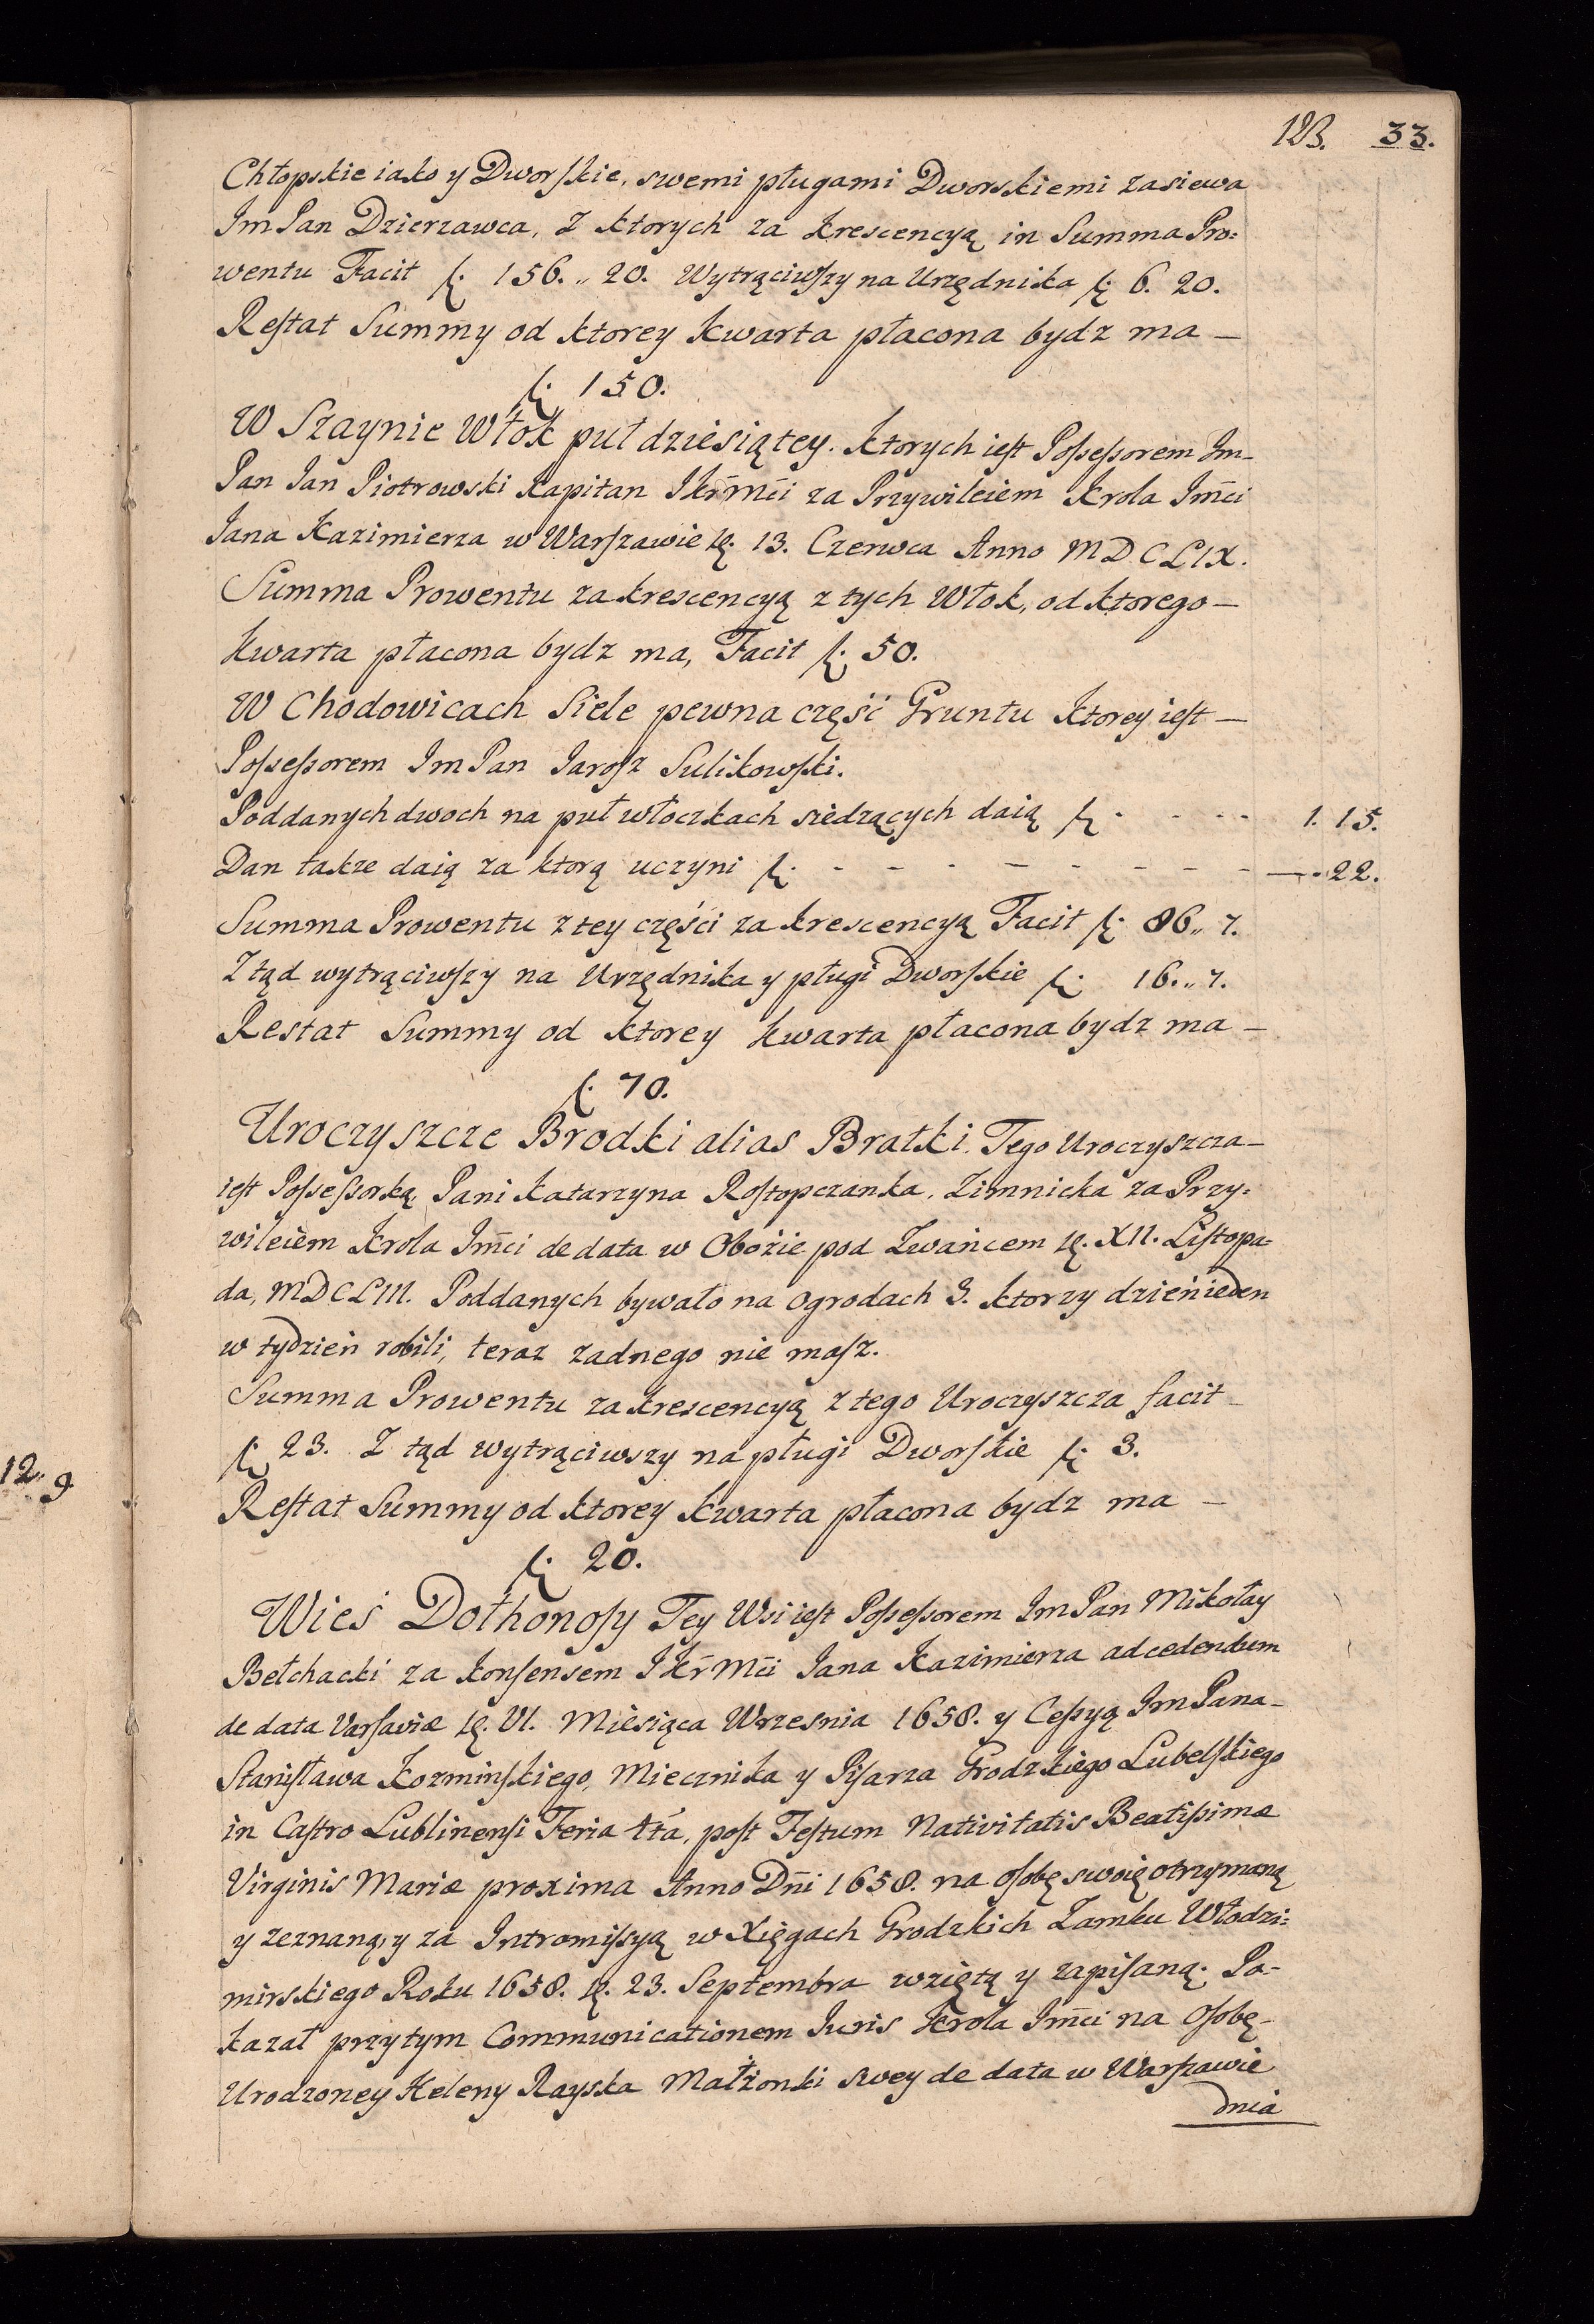 123. 33.
Chłopskie iako y Dworskie, swemi pługami Dworskiemi zasiewa
Im Pan Dzierzawca, Z ktorych za krescencyą in Summa Pro:
wentu Facit f. 156. „ 20. Wytrąciwszy na Urzędnika f. 6. 20.
Restat Summy od ktorey kwarta płacona bydz ma —
f. 150.
W Szaynie Włok puł dziesiątey. Ktorych iest Possessorem Im-
Pan Jan Piotrowski Kapitan JKr̄Mc̄i za Przywileiem Krola Im̄ci
Jana Kazimierza w Warszawie 13. Czerwca Anno MDCLIX.
Summa Prowentu za krescencyą z tych Włok, od ktorego —
kwarta płacona bydz ma, Facit f. 50.
W Chodowicach Siele pewna część Gruntu Ktorey iest —
Possessorem Im Pan Jarosz Sulikowski.
Poddanych dwoch na puł włoczkach siedzących daią f. - - - - 1. 15.
Dan takze daią za ktorą uczyni f. - - - - - - - - — „ 22.
Summa Prowentu z tey części za krescencyą Facit f. 86„ 7.
Z tąd wytrąciwszy na Urzędnika y pługi Dworskie f. 16. „ 7.
Restat Summy od ktorey kwarta płacona bydz ma —
f. 70.
Uroczyszcze Brodki alias Bratki. Tego Uroczyszcza —
iest Possessorką, Pani Katarzyna Rostopczanka, Zimnicka za Przy:
wileiem Krola Im̄ci de data w Obozie pod Zwańcem XII. Listopa:
da, MDCLIII. Poddanych bywało na Ogrodach 3. Ktorzy dzień ieden
w tydzień robili, teraz zadnego nie masz.
Summa Prowentu za krescencyą z tego Uroczyszcza facit —
f. 23. Z tąd wytrąciwszy na pługi Dworskie f. 3.
Restat Summy od ktorey kwarta płacona bydz ma —
f. 20.
12„ 9
Wieś Dołhonosy Tey Wsi iest Possessorem Im Pan Mikołay
Bełchacki za konsensem JKr̄Mc̄i Jana Kazimierza ad cedendum
de data Varsaviæ VI. Miesiąca Wrzesnia 1658. y Cessyą Im Pana —
Stanisława Kozminskiego, Miecznika y Pisarza Grodzkiego Lubelskiego
in Castro Lublinensi Feria 4ta, post Festum Nativitatis Beatissimæ
Virginis Mariæ proxima Anno Dn̄i 1658. na Osobę swoię otrzymaną
y zeznaną, y za Intromissyą w Xięgach Grodzkich Zamku Włodzi:
mirskiego Roku 1658. 23. Septembra wziętą y zapisaną. Po-
kazał przytym Communicationem Juris Krola Im̄ci na Osobę —
Urodzoney Heleny Rayska Małżonki swey de data w Warszawie
dnia